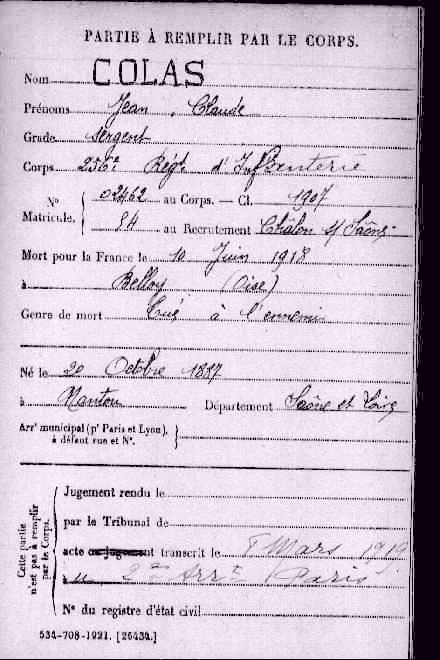 PARTIE À REMPLIR PAR LE CORPS.
Nom COLAS
Prénoms Jean, Claude
Grade sergent
Corps 256e Régt d'Infanterie
N° Matricule. 02462 au Corps. — Cl. 1907
84 au Recrutement Châlon s/ Saône
Mort pour la France le 10 Juin 1918
à Belloy (Oise)
Genre de mort Tué à l'ennemi
Né le 20 Octobre 1887
à Nanton Département Saône et Loire
Arrt municipal (pr Paris et Lyon),
à défaut rue et N°.
Cette partie n'est pas à remplir par le Corps.
Jugement rendu le
par le Tribunal de
acte ou jugement transcrit le Mars 1919
à u 2me Arrt Paris
N° du registre d'état civil
534-708-1921. [26434.]